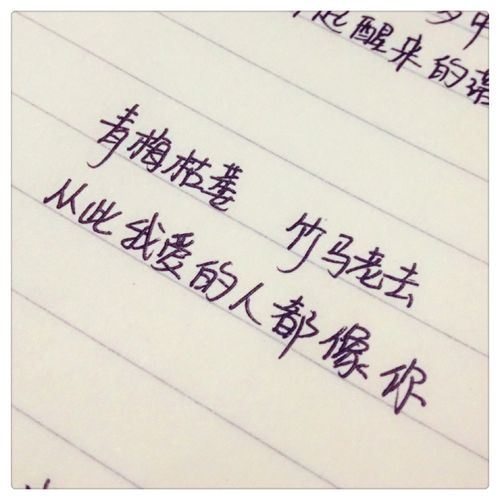 起醒来的
青梅枯萎 竹马老去
从此我爱的人都像你